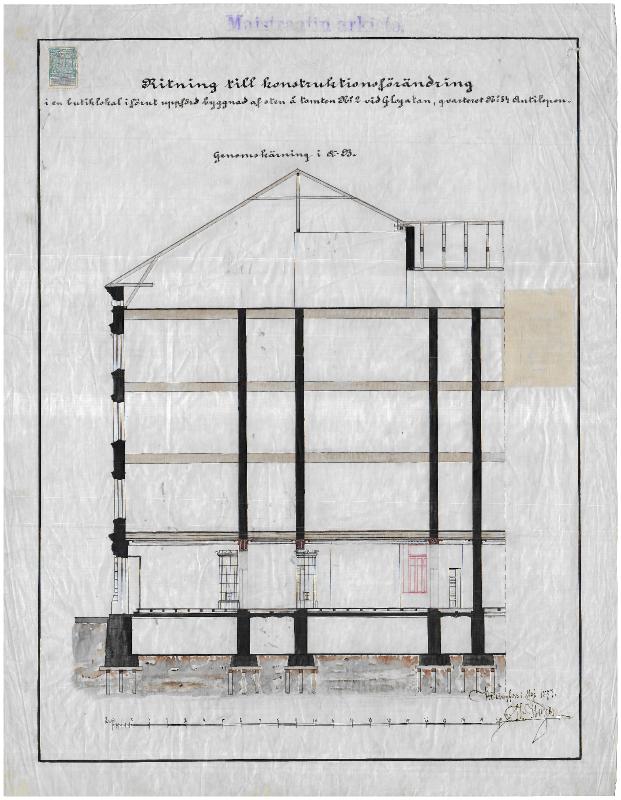 Maistraatin arkisto.
Ritning till konstruktionsförändring
i en butiklokal i förut uppförd byggnad af sten å tomten No 2 vid Glogatan, qvarteret No 54 Antilopen.
Genomskärning i A-B.
Helsingfors i Maj